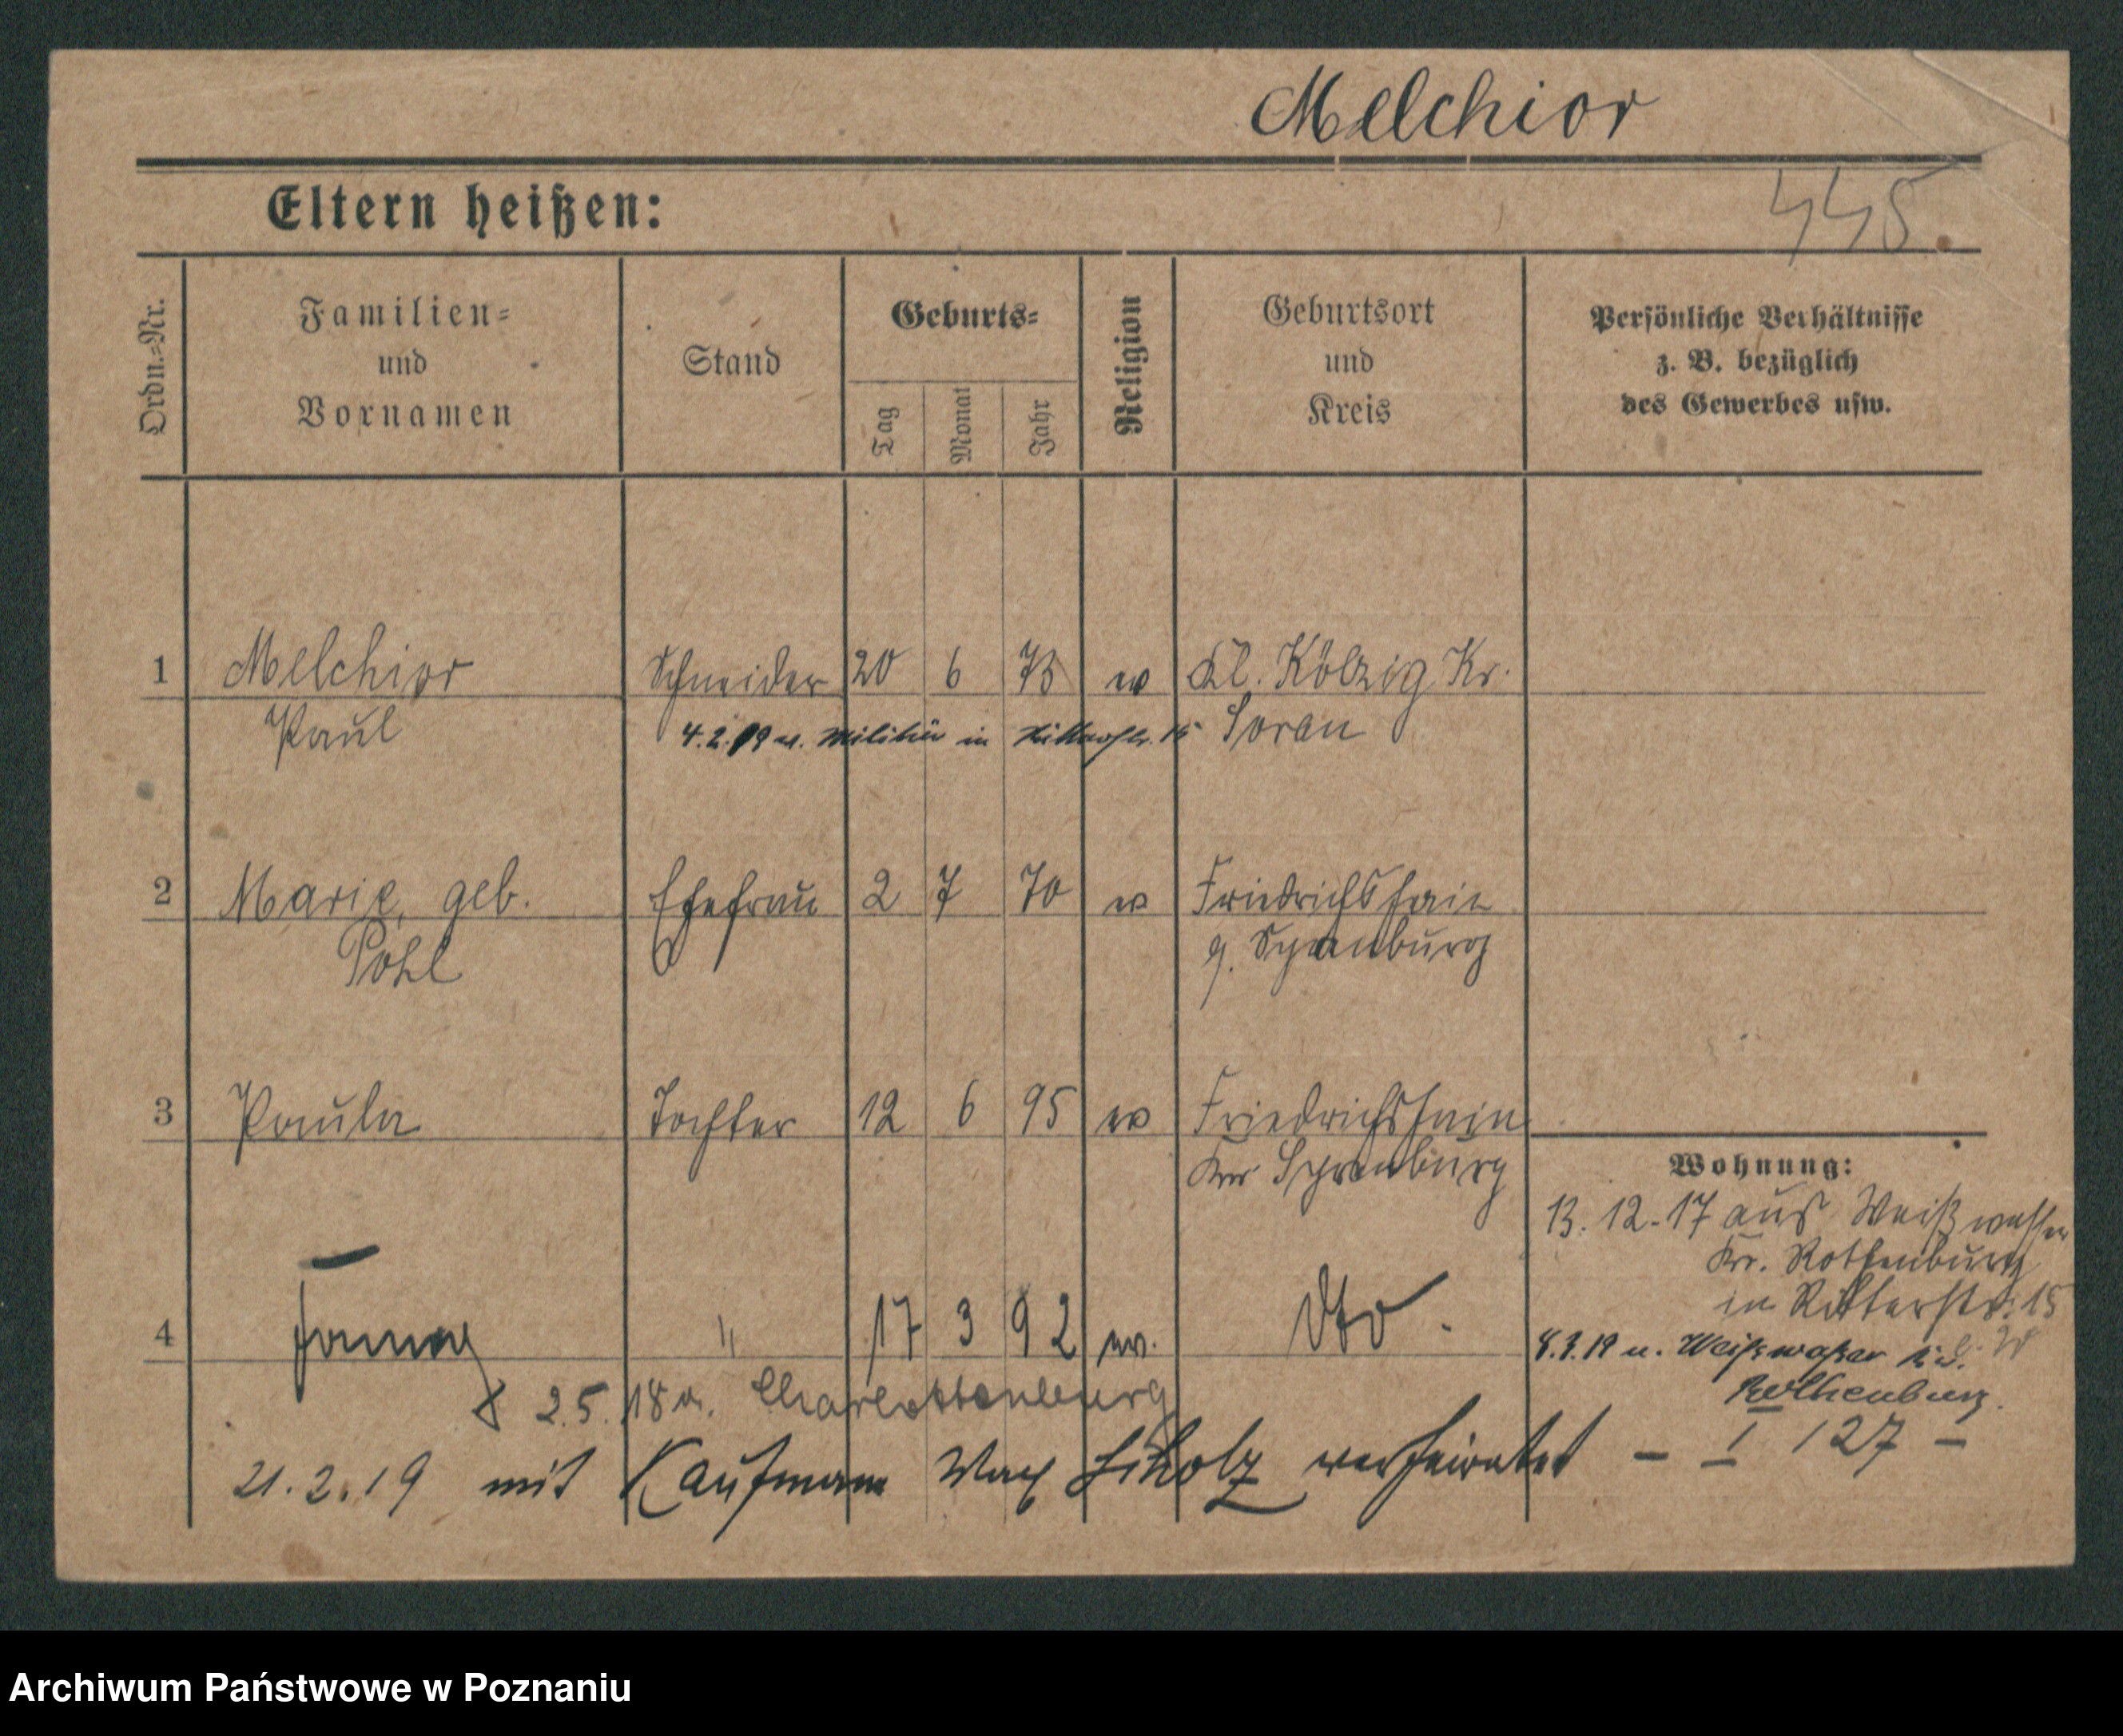 Melchior
Eltern heißen:
445.
Ordn.=Nr.
Familien=
und
Vornamen
Stand
Geburts=
Tag
Monat
Jahr
Religion
Geburtsort
und
Kreis
Persönliche Verhältnisse
z. B. bezüglich
des Gewerbes usw.
1 Melchior Schneider 20 6 73 ev Kl. Kölzig Kr.
Paul 4.2.19 u. Militär in Ritterstr. 15 Sorau
2 Marie, geb. Ehefrau 2 7 70 ev Friedrichshain
Pohl Spremburg
3 Paula Tochter 12 6 95 ev Friedrichshain
Spremburg
Wohnung:
13.12.17 aus Weißwasser
Kr. Rothenburg
in Ritterstr. 15
4 " 17 3 92 ev. dto.
8.3.19 n. Weißwasser
Rothenburg.
2.5.18 n. Charlottenburg
21.2.19 mit Kaufmann Max verheiratet – I 127 –
Archiwum Państwowe w Poznaniu